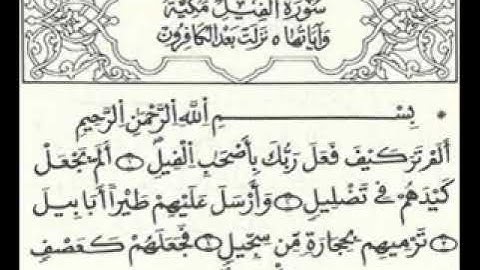 سُورَةُ الفِيلِ مَكِيَّة
وَآيَاتُهَا ٥ نَزَلَتْ بَعْدَ الكَافِرُون
بِسْمِ اللَّهِ الرَّحْمَٰنِ الرَّحِيمِ
أَلَمْ تَرَ كَيْفَ فَعَلَ رَبُّكَ بِأَصْحَابِ الْفِيلِ ١ أَلَمْ يَجْعَلْ
كَيْدَهُمْ فِي تَضْلِيلٍ ٢ وَأَرْسَلَ عَلَيْهِمْ طَيْراً أَبَابِيلَ
٣ تَرْمِيهِم بِحِجَارَةٍ مِّن سِجِّيلٍ ٤ فَجَعَلَهُمْ كَعَصْفٍ